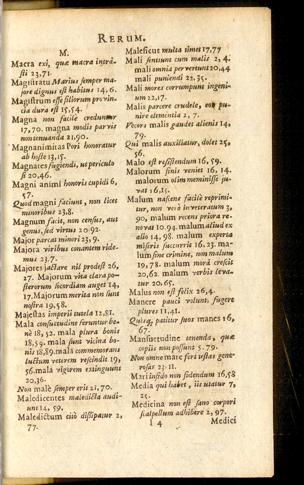 RERUM.
M.
Macra exi, quæ macra intrâ-
sti 23,71.
Magistratu Marius semper ma-
jore dignus est habitus 14,6.
Magistrum esse filiorum provin-
cia dura est 15,54.
Magna non facile creduntur
17,70. magna modis parvis
non tenuanda 21,90.
Magnanimitas Pori honoratur
ab hoste 13,15.
Magnates fugiendi, ut periculo
si 20,46.
Magni animi honoris cupidi 6,
57.
Quod magni faciunt, non licet
minoribus 23,8.
Magnum facit, non census, aut
genus, sed virtus 20.92.
Major parcat minori 23,9.
Majora viribus conantem ride-
mus 23.7.
Majores jactare nil prodest 26,
27. Majorum vita clara po-
sterorum socordiam auget 14,
17. Majorum merita non sunt
nostra 19,58.
Majestas imperii tutela 12,81.
Mala consuetudine feruntur be-
nè 18,52. mala plura bonis
18,54. mala sunt vicina bo-
nis 18,89. mali commemorans
luctum veterem rescindit 19,
56. mala vigorem extinguunt
20,36.
Non male semper erit 21,70.
Maledicentes maledicta audi-
unt 14, 59.
Maledictum citò dissipatur 2,
77.
Maleficus multa timet 17,77
Mali sentiunt cum malis 2, 4.
mali omnia pervertunt 20,44
mali puniendi 22.35.
Mali mores corrumpunt ingeni-
um 22,17.
Malis parcere crudele, eos pu-
nire clementia 2, 7.
Pictores malis gaudet alienis 14,
79.
Qui malis auxiliatur, dolet 25,
56.
Malo est resistendum 16, 59.
Malorum finis venies 16, 14.
malorum olim meminisse ju-
vat 16,15.
Malum nascens facilè reprimi-
tur, non verò inveteratum 2,
90, malum recens priora re-
novat 10.94. malum aliud ex
alio 14, 98. malum experta
miseris succurrit 16, 23. ma-
lum sine crimine, non malum
19,78. malum morâ crescit
20,62. malum verbis leva-
tur 20.65.
Malus non est felix 26,4.
Manere pauci volunt, fugere
plures 11,41.
Quisq; patitur suos manes 16,
67.
Mansuetudine tenenda, quæ
copiis non possunt 5. 79.
Non omne mare fert ustas gene-
rosas 23. 11.
Mari infido non fidendum 16,58
Media qui habet, iis utatur 7,
25.
Medicina non est sano corpori
scalpellum adhibere 2, 97.
4
Medici